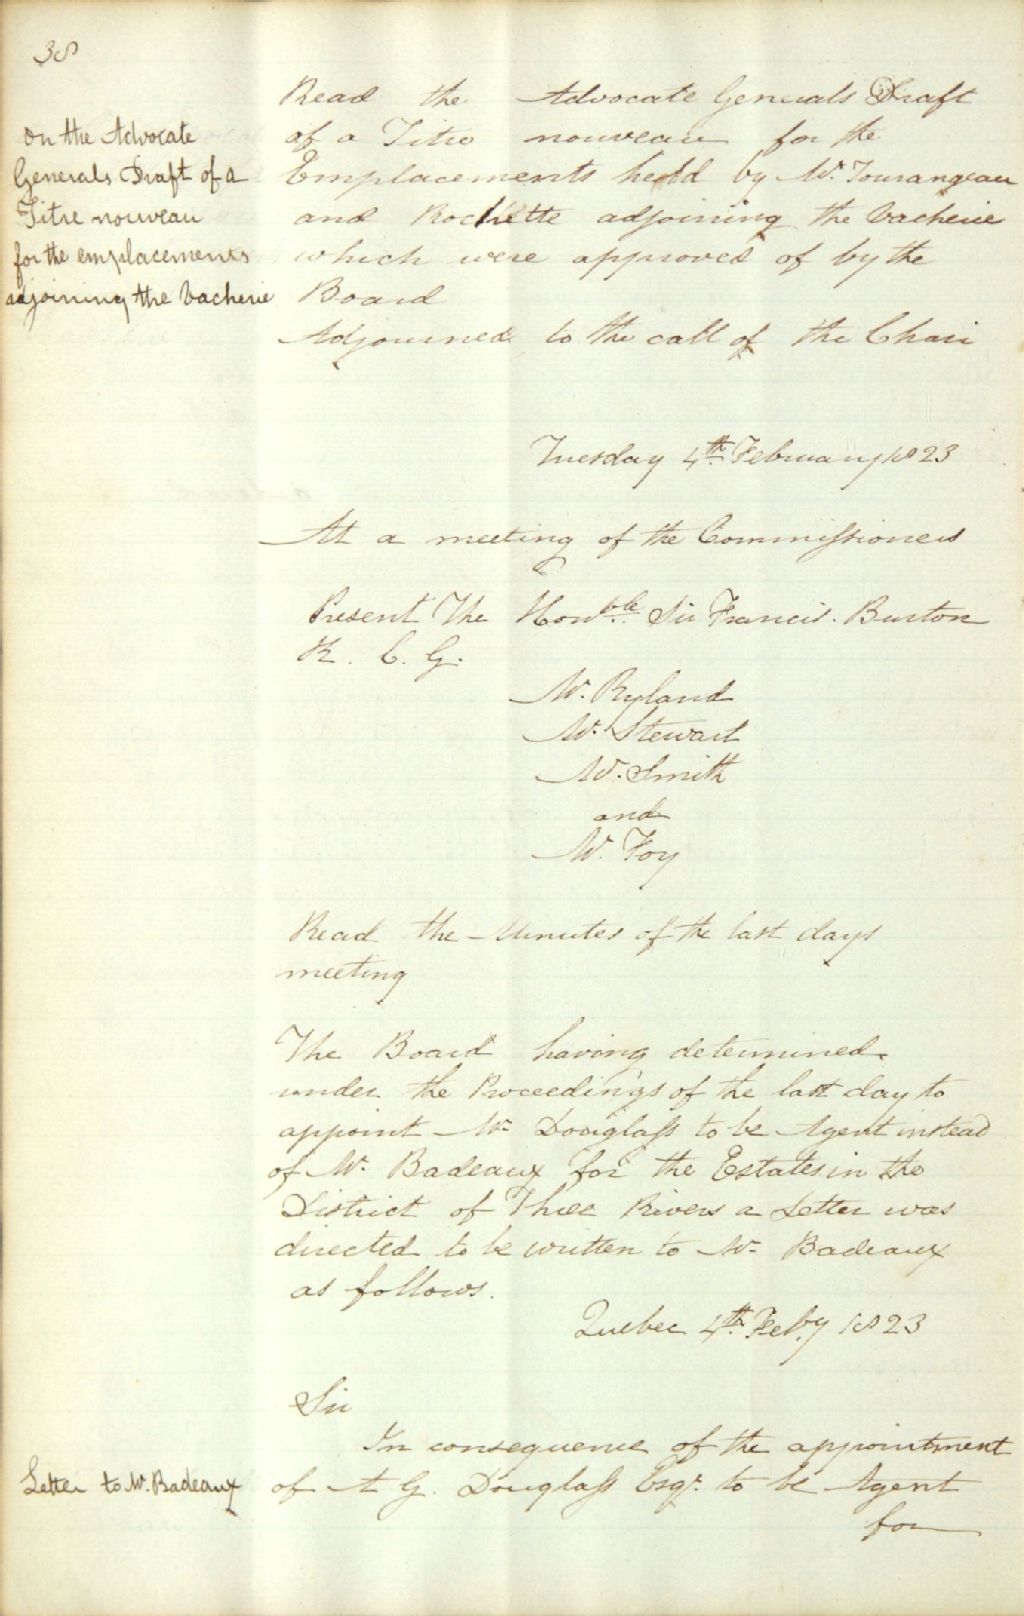 38
Read the Advocate Generals Draft
of a Titre nouveau for the
Emplacements held by Mr. Tourangeau
and Rochette adjoining the Vacherie
which were approved of by the
Board
Adjourned to the call of the Chair
on the Advocate
Generals Draft of a
Titre nouveau
for the emplacements
adjoining the Vacherie
Tuesday 4th February 1823
At a meeting of the Commissioners
Present The Honble. Sir Francis. Burton
K. C. G.
Mr. Ryland
Mr. Stewart
Mr. Smith
and
Mr. Foy
Read the Minutes of the last days
meeting
The Board having determined
under the Proceedings of the last day to
appoint Mr. Douglass to be Agent instead
of Mr. Badeaux for the Estates in the
District of Three Rivers a Letter was
directed to be written to Mr. Badeaux
as follows.
Quebec 4th. Feby 1823
Sir
In consequence of the appointment
of A G. Douglass Esqr. to be Agent
for
Letter to Mr. Badeaux